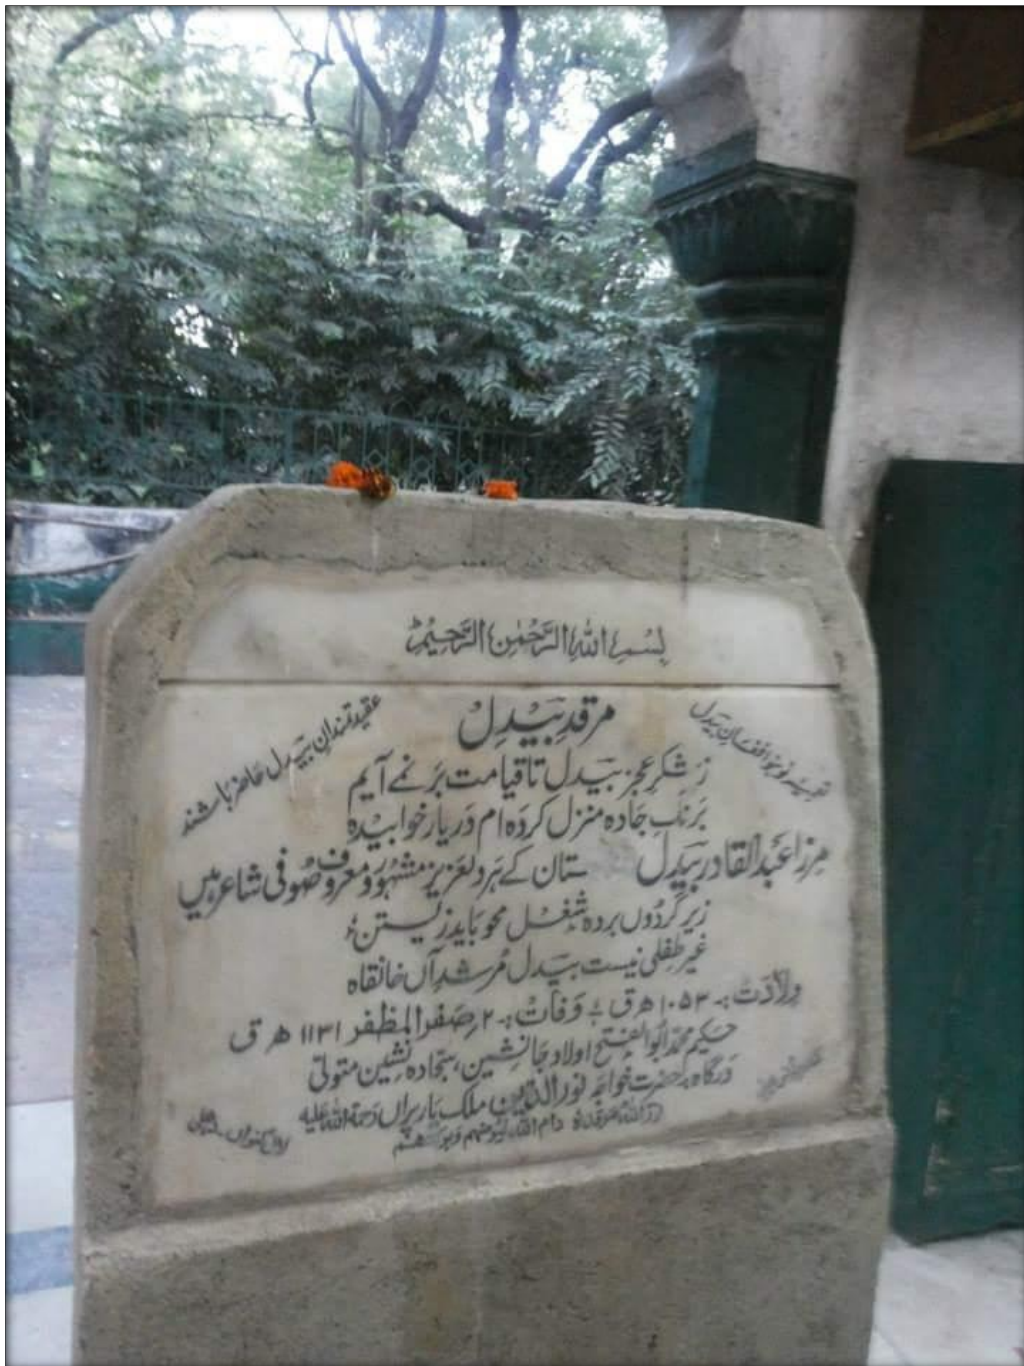 بِسْمِ اللّٰہِ الرَّحْمٰنِ الرَّحِیْمْ
مرقدِ بَیْدِلْ
عقیدتمندانِ بَیدل حاضر باشند
زشکرِ عجز بَیدل تا قیامت بَر نمے آیم
بَرنگِ جَادہ منزل کردَہ ام دَر پا رِ خوابیْدہ
مرزا عَبدُالقادر بَیدَلؔ ستان کے ہَر دلعزیز مشہُور و معروف صُوفی شاعر ہیں
زیرِ گردُوں بردہ شغل محو باید زیستن
غیرِ طِفلی نیست بَیدَل مُرشدِ آں خانقاہ
وِلادَت :۔ ۱۰۵۳ ھ ق ؛ وَفات :۔ ۲ صَفر المظفر ۱۱۳۱ ھ ق
حکیم محمّد ابُوالفتح اولاد جَانشین، سَجادہ نشین متولی
دَرگاہ :۔ حضرت خواجہ نورُالدّین ملک یار پراں رحمۃ اللہ علیہ